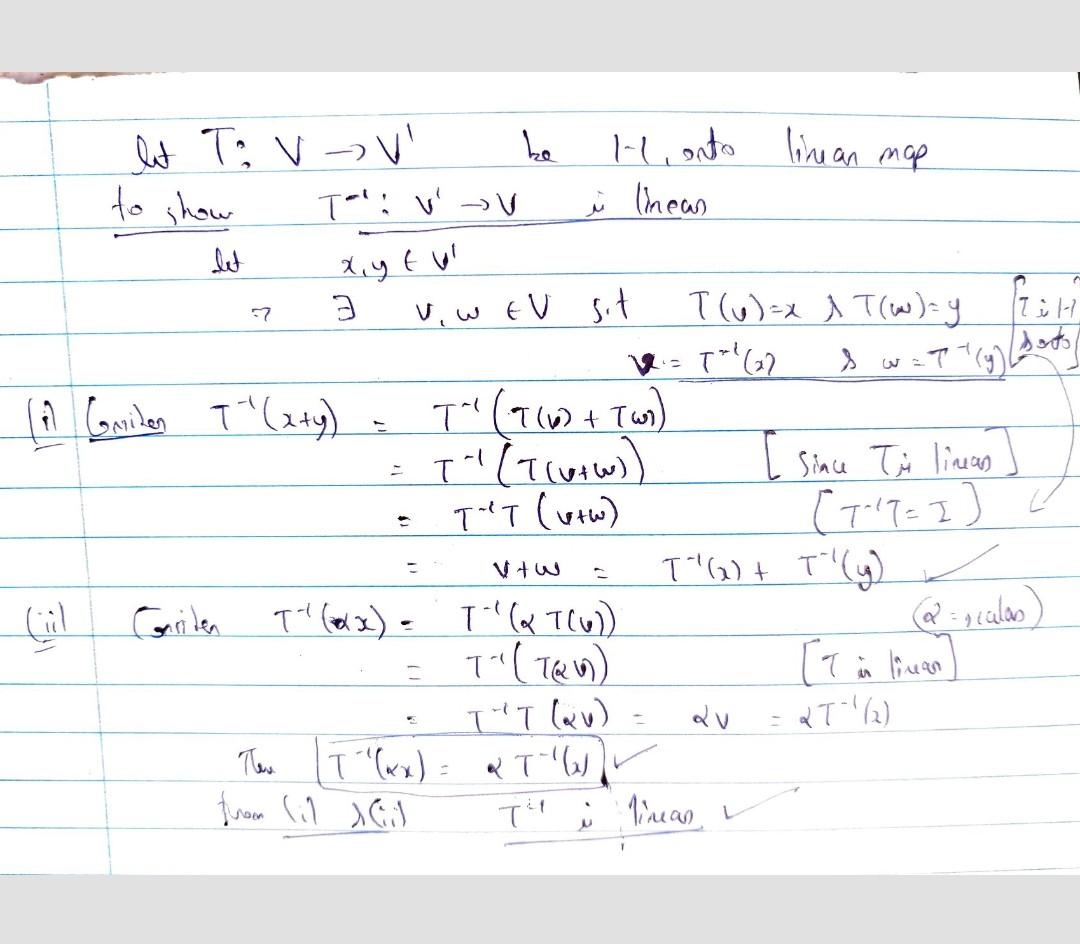 let T: V → V' be 1-1, onto linear map
to show T⁻¹: V' → V is linear
let x, y ∈ V'
⇒ ∃ v, w ∈ V s.t T(v)=x & T(w)=y [T is 1-1 & onto]
v = T⁻¹(x) & w = T⁻¹(y)
(i) Consider T⁻¹(x+y) = T⁻¹(T(v) + T(w))
= T⁻¹(T(v+w)) [Since T is linear]
= T⁻¹T(v+w) [T⁻¹T = I]
= v+w = T⁻¹(x) + T⁻¹(y) ✓
(ii) Consider T⁻¹(αx) = T⁻¹(α T(v)) (α = scalar)
= T⁻¹(T(αv)) [T is linear]
= T⁻¹T(αv) = αv = αT⁻¹(x)
Thus T⁻¹(αx) = α T⁻¹(x) ✓
from (i) & (ii) T⁻¹ is linear ✓